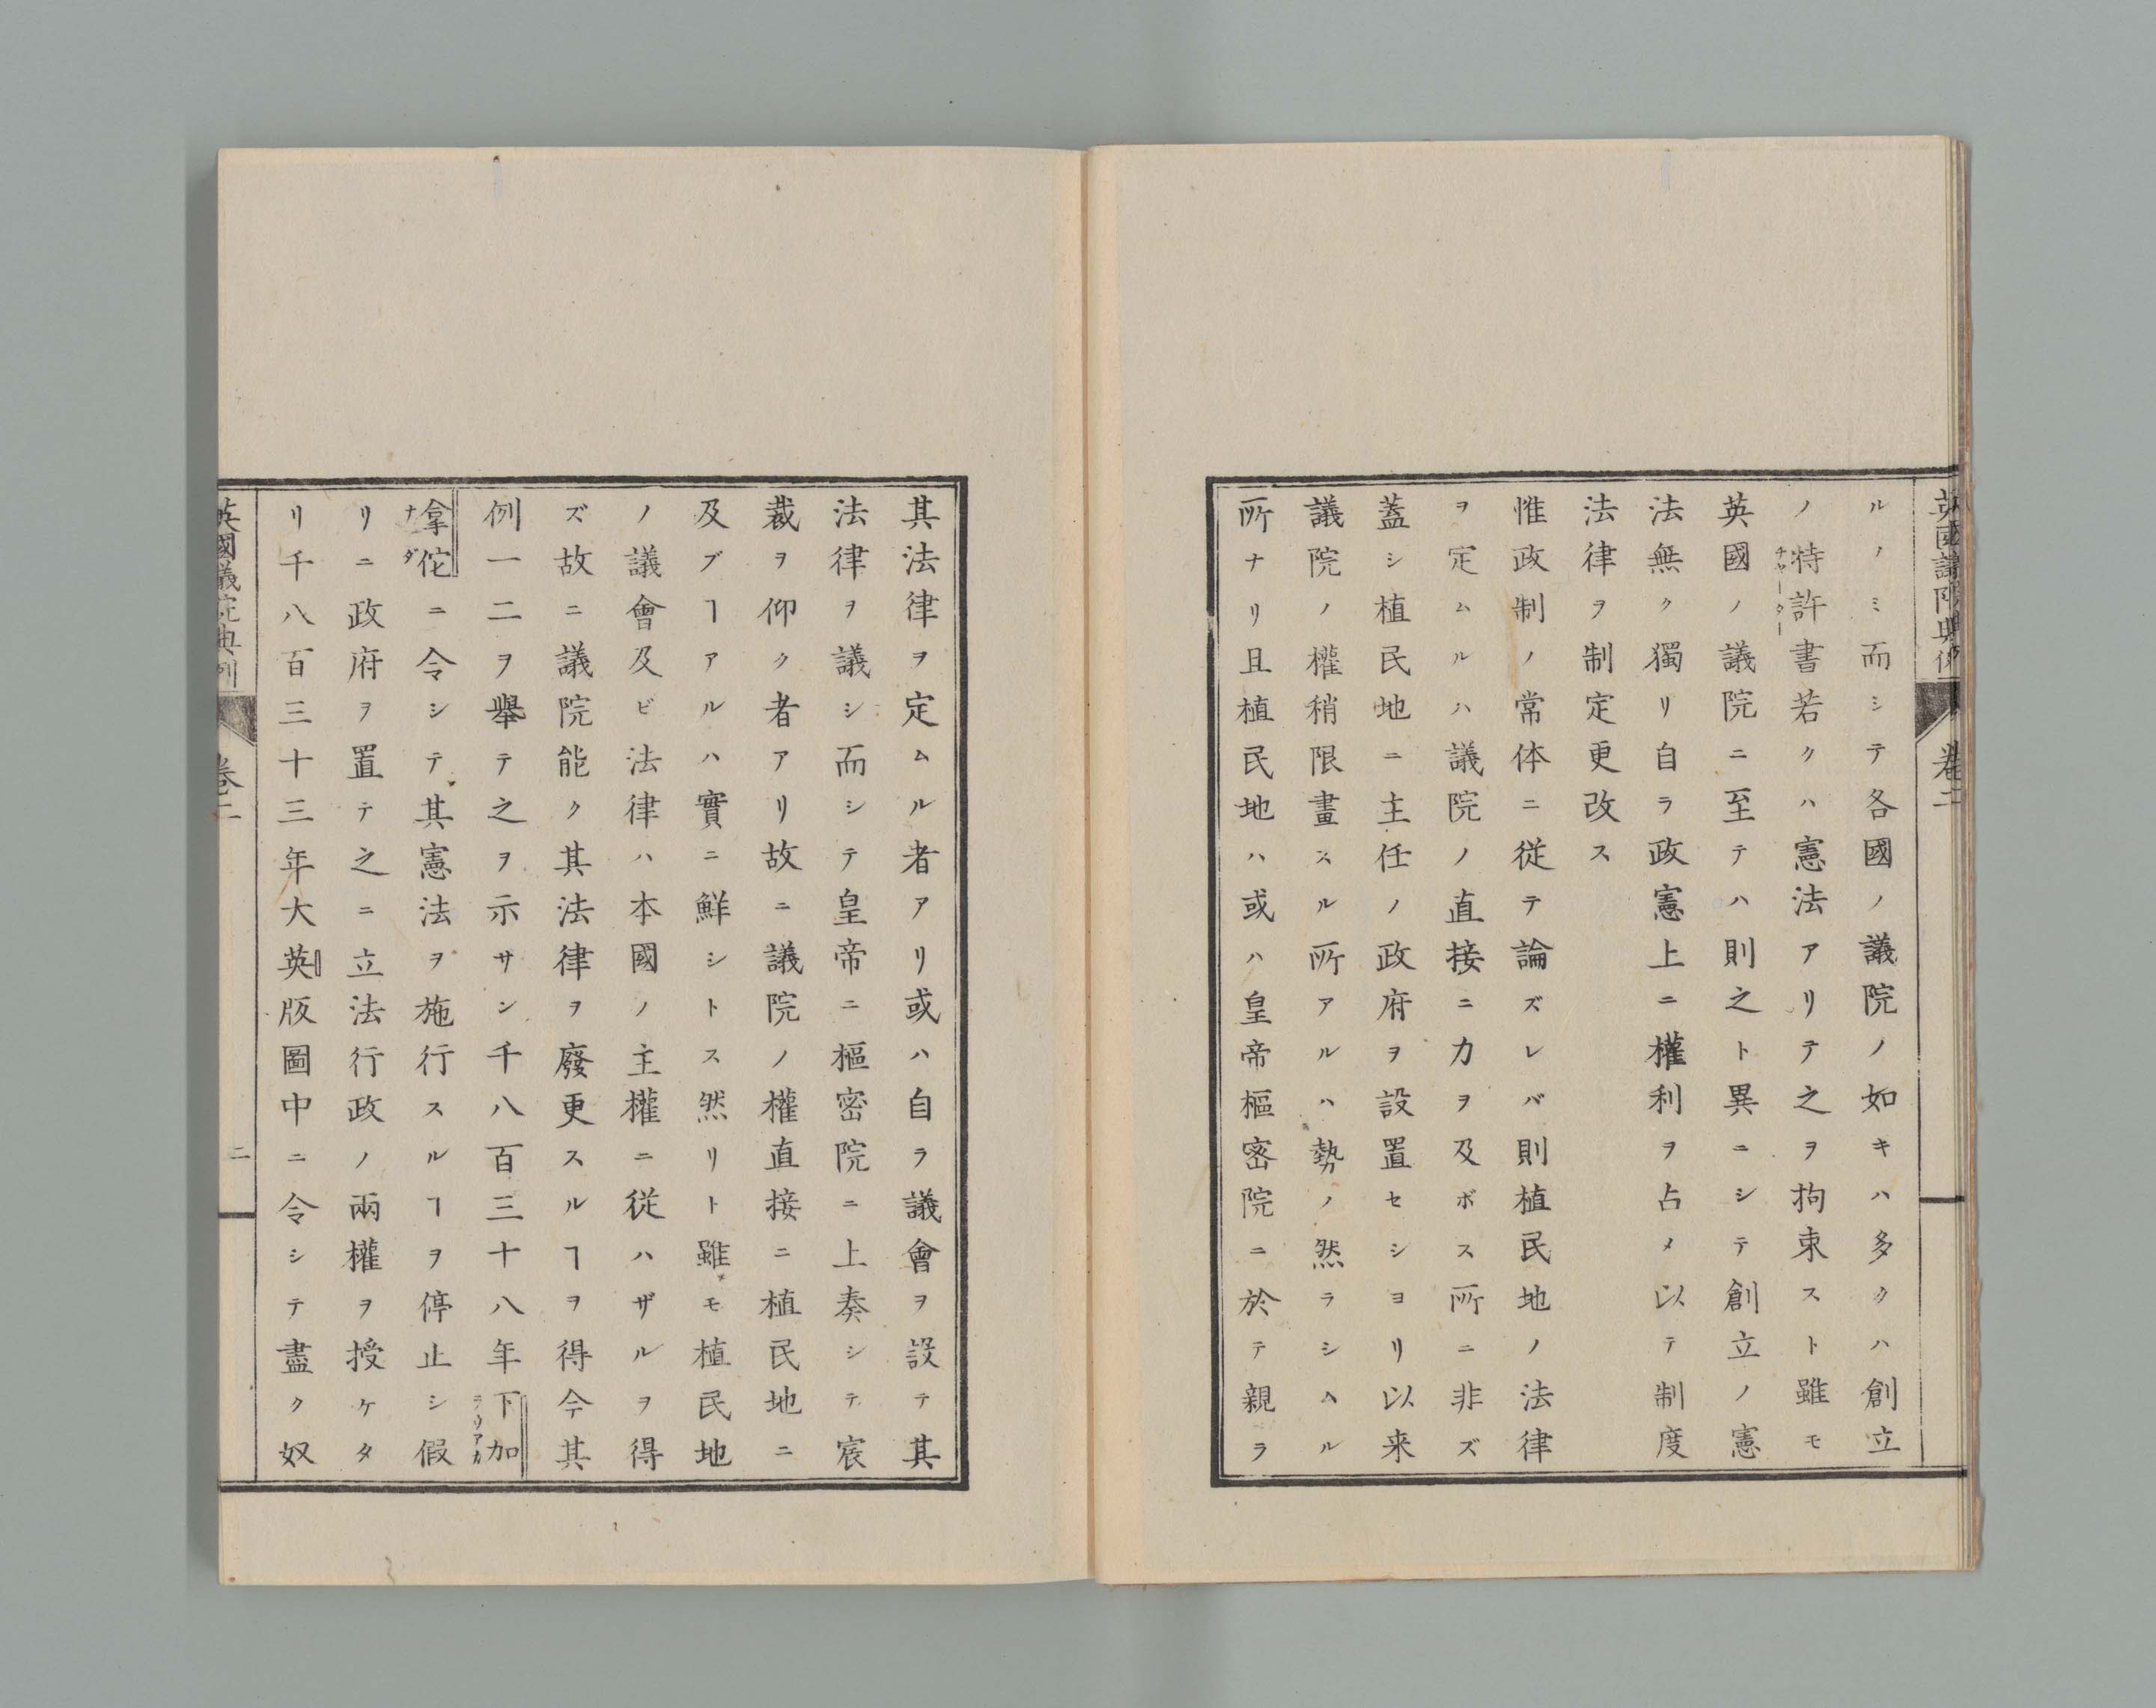 英國議院典例
卷二
ルノミ而シテ各國ノ議院ノ如キハ多クハ創立
ノ特許書若クハ憲法アリテ之ヲ拘束スト雖モ
チャーター
英國ノ議院ニ至テハ則之ト異ニシテ創立ノ憲
法無ク獨リ自ラ政憲上ニ權利ヲ占メ以テ制度
法律ヲ制定更改ス
惟政制ノ常体ニ従テ論ズレバ則植民地ノ法律
ヲ定ムルハ議院ノ直接ニ力ヲ及ボス所ニ非ズ
蓋シ植民地ニ主任ノ政府ヲ設置セシヨリ以来
議院ノ權稍限畫スル所アルハ勢ノ然ラシムル
所ナリ且植民地ハ或ハ皇帝樞密院ニ於テ親ラ
其法律ヲ定ムル者アリ或ハ自ラ議會ヲ設テ其
法律ヲ議シ而シテ皇帝ニ樞密院ニ上奏シテ宸
裁ヲ仰ク者アリ故ニ議院ノ權直接ニ植民地ニ
及ブヿアルハ實ニ鮮シトス然リト雖モ植民地
ノ議會及ビ法律ハ本國ノ主權ニ従ハザルヲ得
ズ故ニ議院能ク其法律ヲ廢更スルヿヲ得今其
例一二ヲ舉テ之ヲ示サン千八百三十八年下加
拿佗ニ令シテ其憲法ヲ施行スルヿヲ停止シ假
ナダ
リニ政府ヲ置テ之ニ立法行政ノ兩權ヲ授ケタ
リ千八百三十三年大英版圖中ニ令シテ盡ク奴
英國議院典例
卷二
二